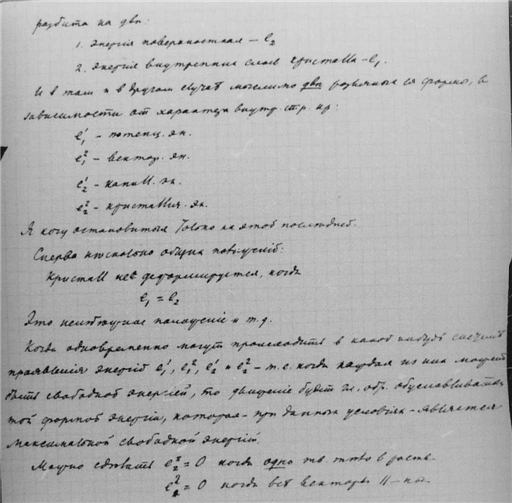 разбита на две:
1. Энергія поверхностная – e₂
2. Энергія внутренних слоев кристалла – e₁.
И в том и в другом случае мыслимо две различныя ея формы, в
зависимости от характера внутр. стр. кр:
e₁′ – потенц. эн.
e₁² – вектор. эн.
e₂′ – капилл. эн.
e₂² – кристаллич. эн.
Я хочу остановиться только на этой последней.
Сперва несколько общих положеній:
Кристалл не деформируется, когда
e₁ = e₂
Это неизбежное положеніе и т.д.
Когда одновременно могут происходить в какой нибудь системе
проявленія энергій e₁′, e₁², e₂′ и e₂² – т.е. когда каждая из них может
быть свободной энергіей, то движеніе будет гл. обр. обуславливаться
той формой энергіи, которая – при данных условіях – является
максимальной свободной энергіей.
Можно сделать e₂² = 0 когда одно тв. тело в раств.
e₂² = 0 когда все векторы || –